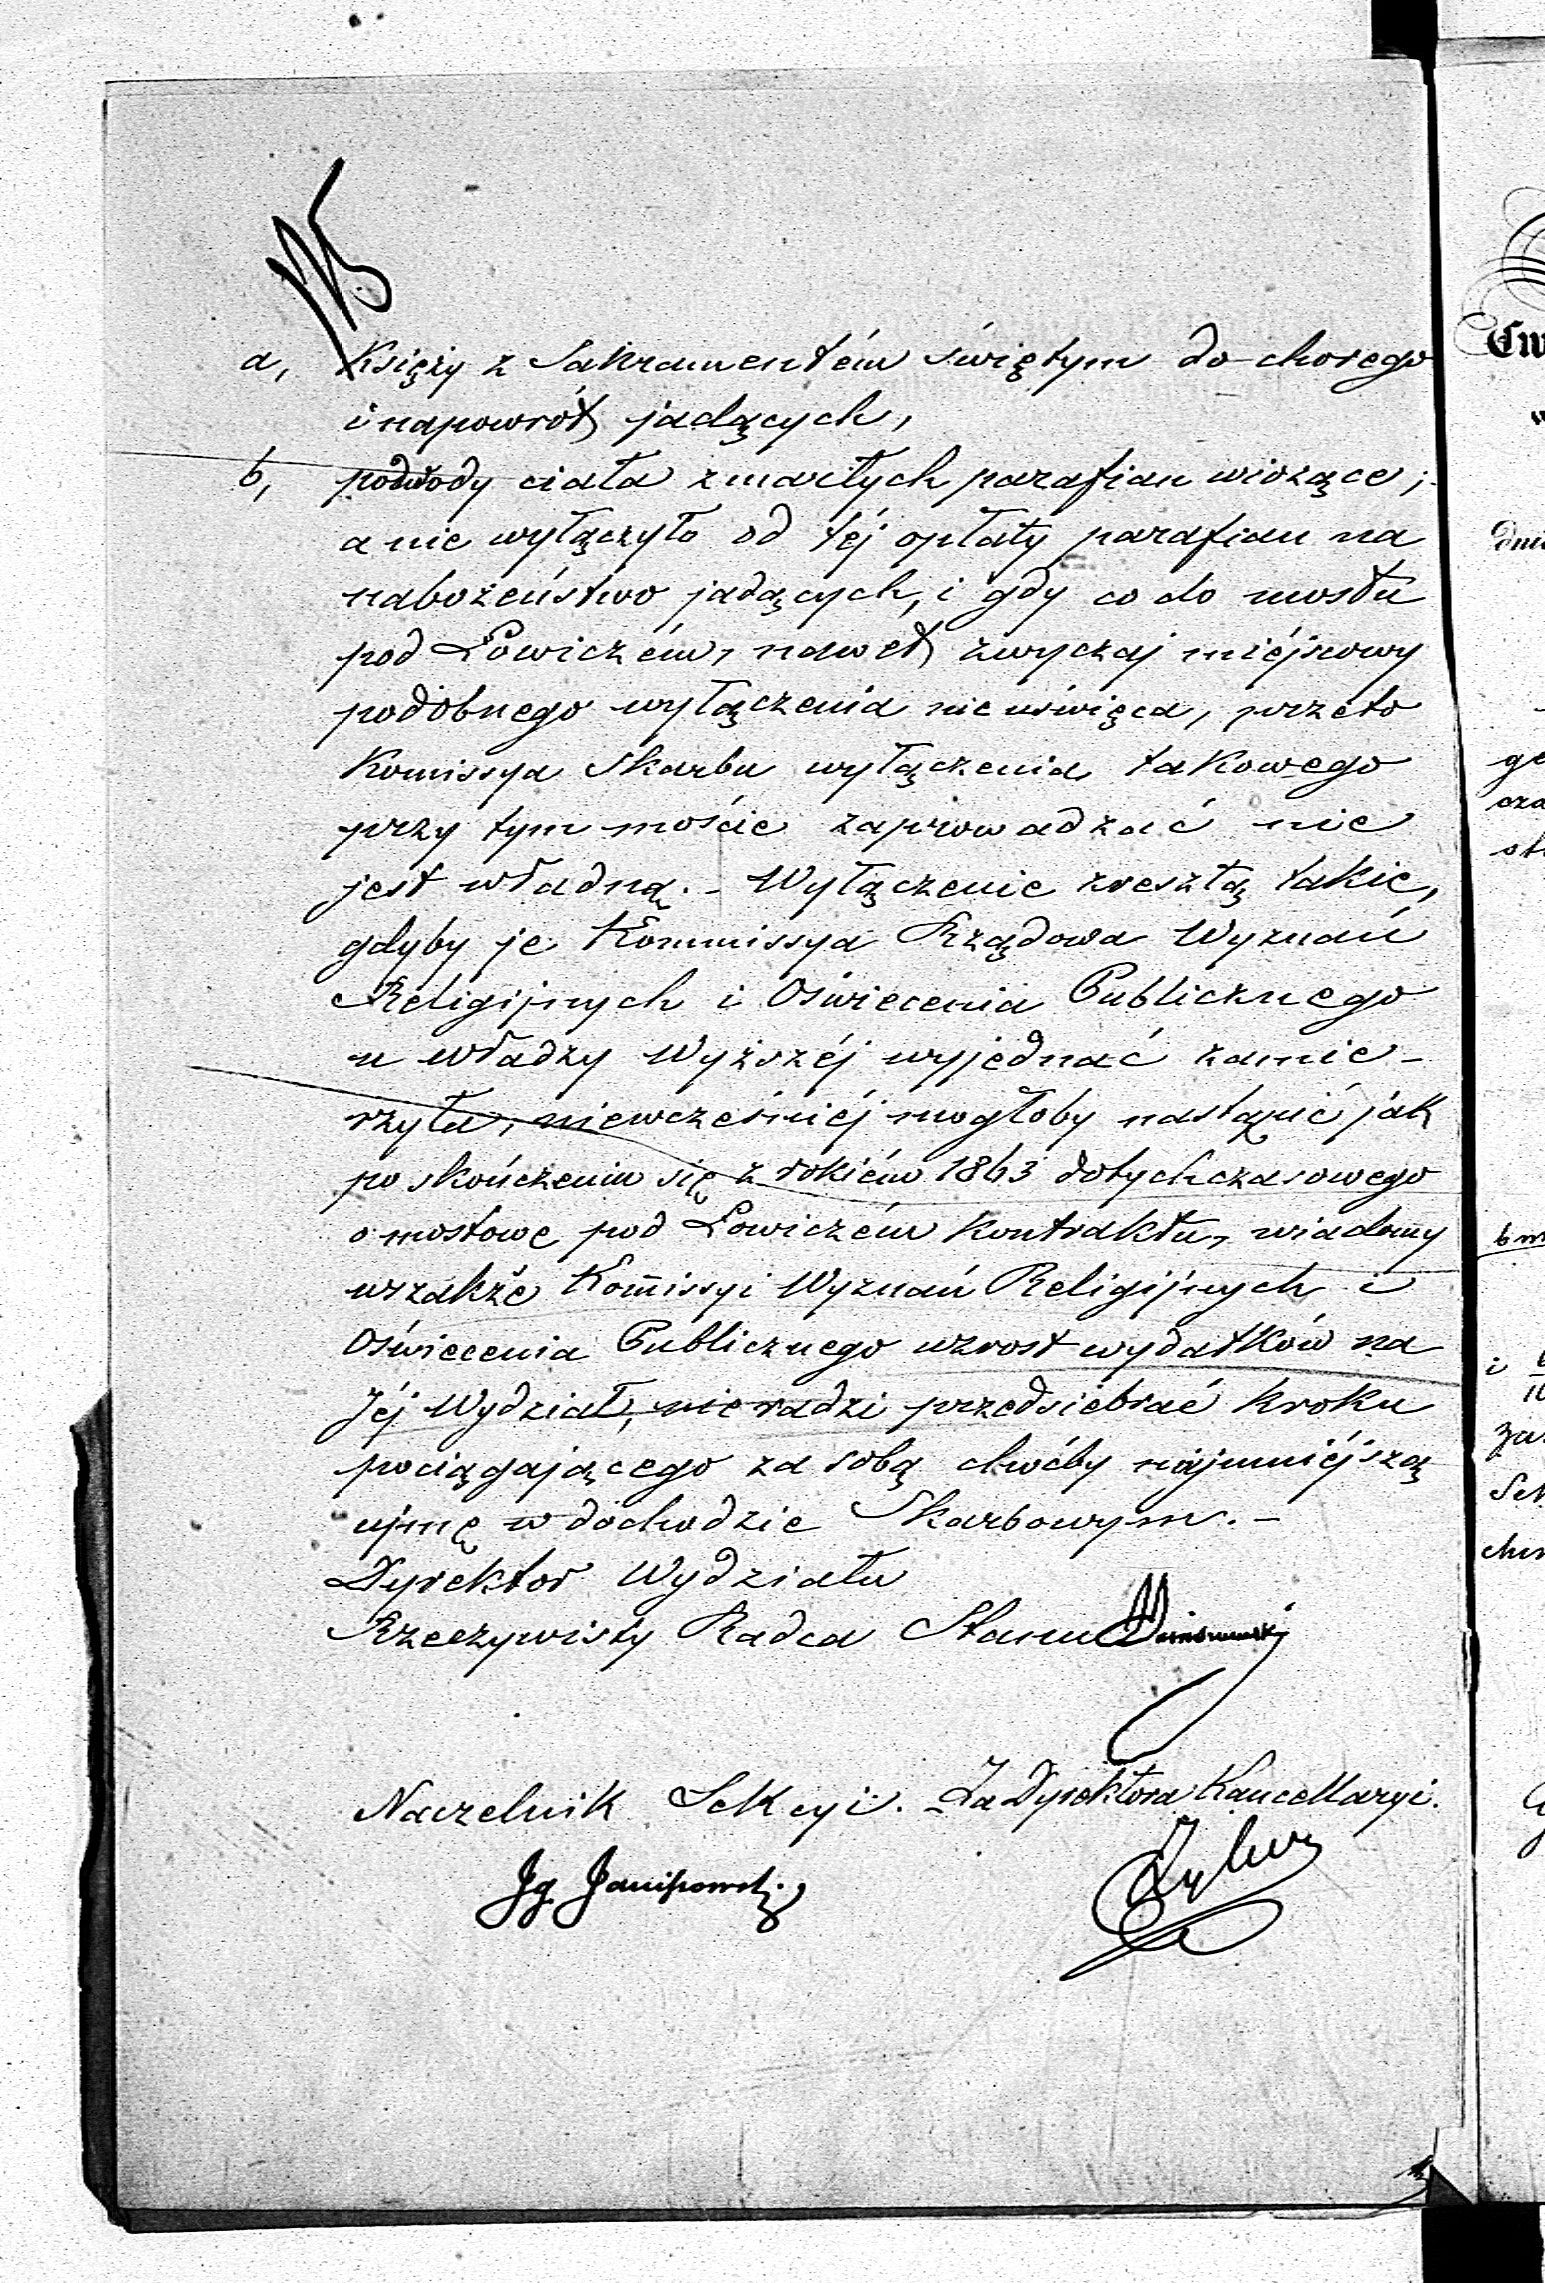 a, Księży z Sakramentém świętym do chorego
i napowrót jadących,
b, podwody ciała zmarłych parafian wiozące;
a nie wyłączyło od téj opłaty parafian na
nabożeństwo jadących, i gdy co do mostu
pod Łowiczém, nawet zwyczaj miéjscowy
podobnego wyłączenia nie uświęca, przeto
Komissya Skarbu wyłączenia takowego
przy tym moście zaprowadzać nie
jest władną. - Wyłączenie zresztą takie,
gdyby je Kommissya Rządowa Wyznań
Religijnych i Oświecenia Publicznego
u władzy Wyższéj wyjednać zamie-
rzyła, niewcześniéj mogłoby nastąpić jak
po skończeniu się z rokiém 1863 dotychczasowego
o mostowe pod Łowiczém kontraktu, wiadomy
wszakże Kom̄issyi Wyznań Religijnych i
Oświecenia Publicznego wzrost wydatków na
Jéj Wydział, nie radzi przedsiebrać kroku
pociągającego za sobą choćby najmniéjszą
ujmę w dochodzie Skarbowym. -
Dyrektor Wydziału
Rzeczywisty Radca Stanu
Naczelnik Sekcyi. Za Dyrektora Kancellaryi.
Ig
dnia